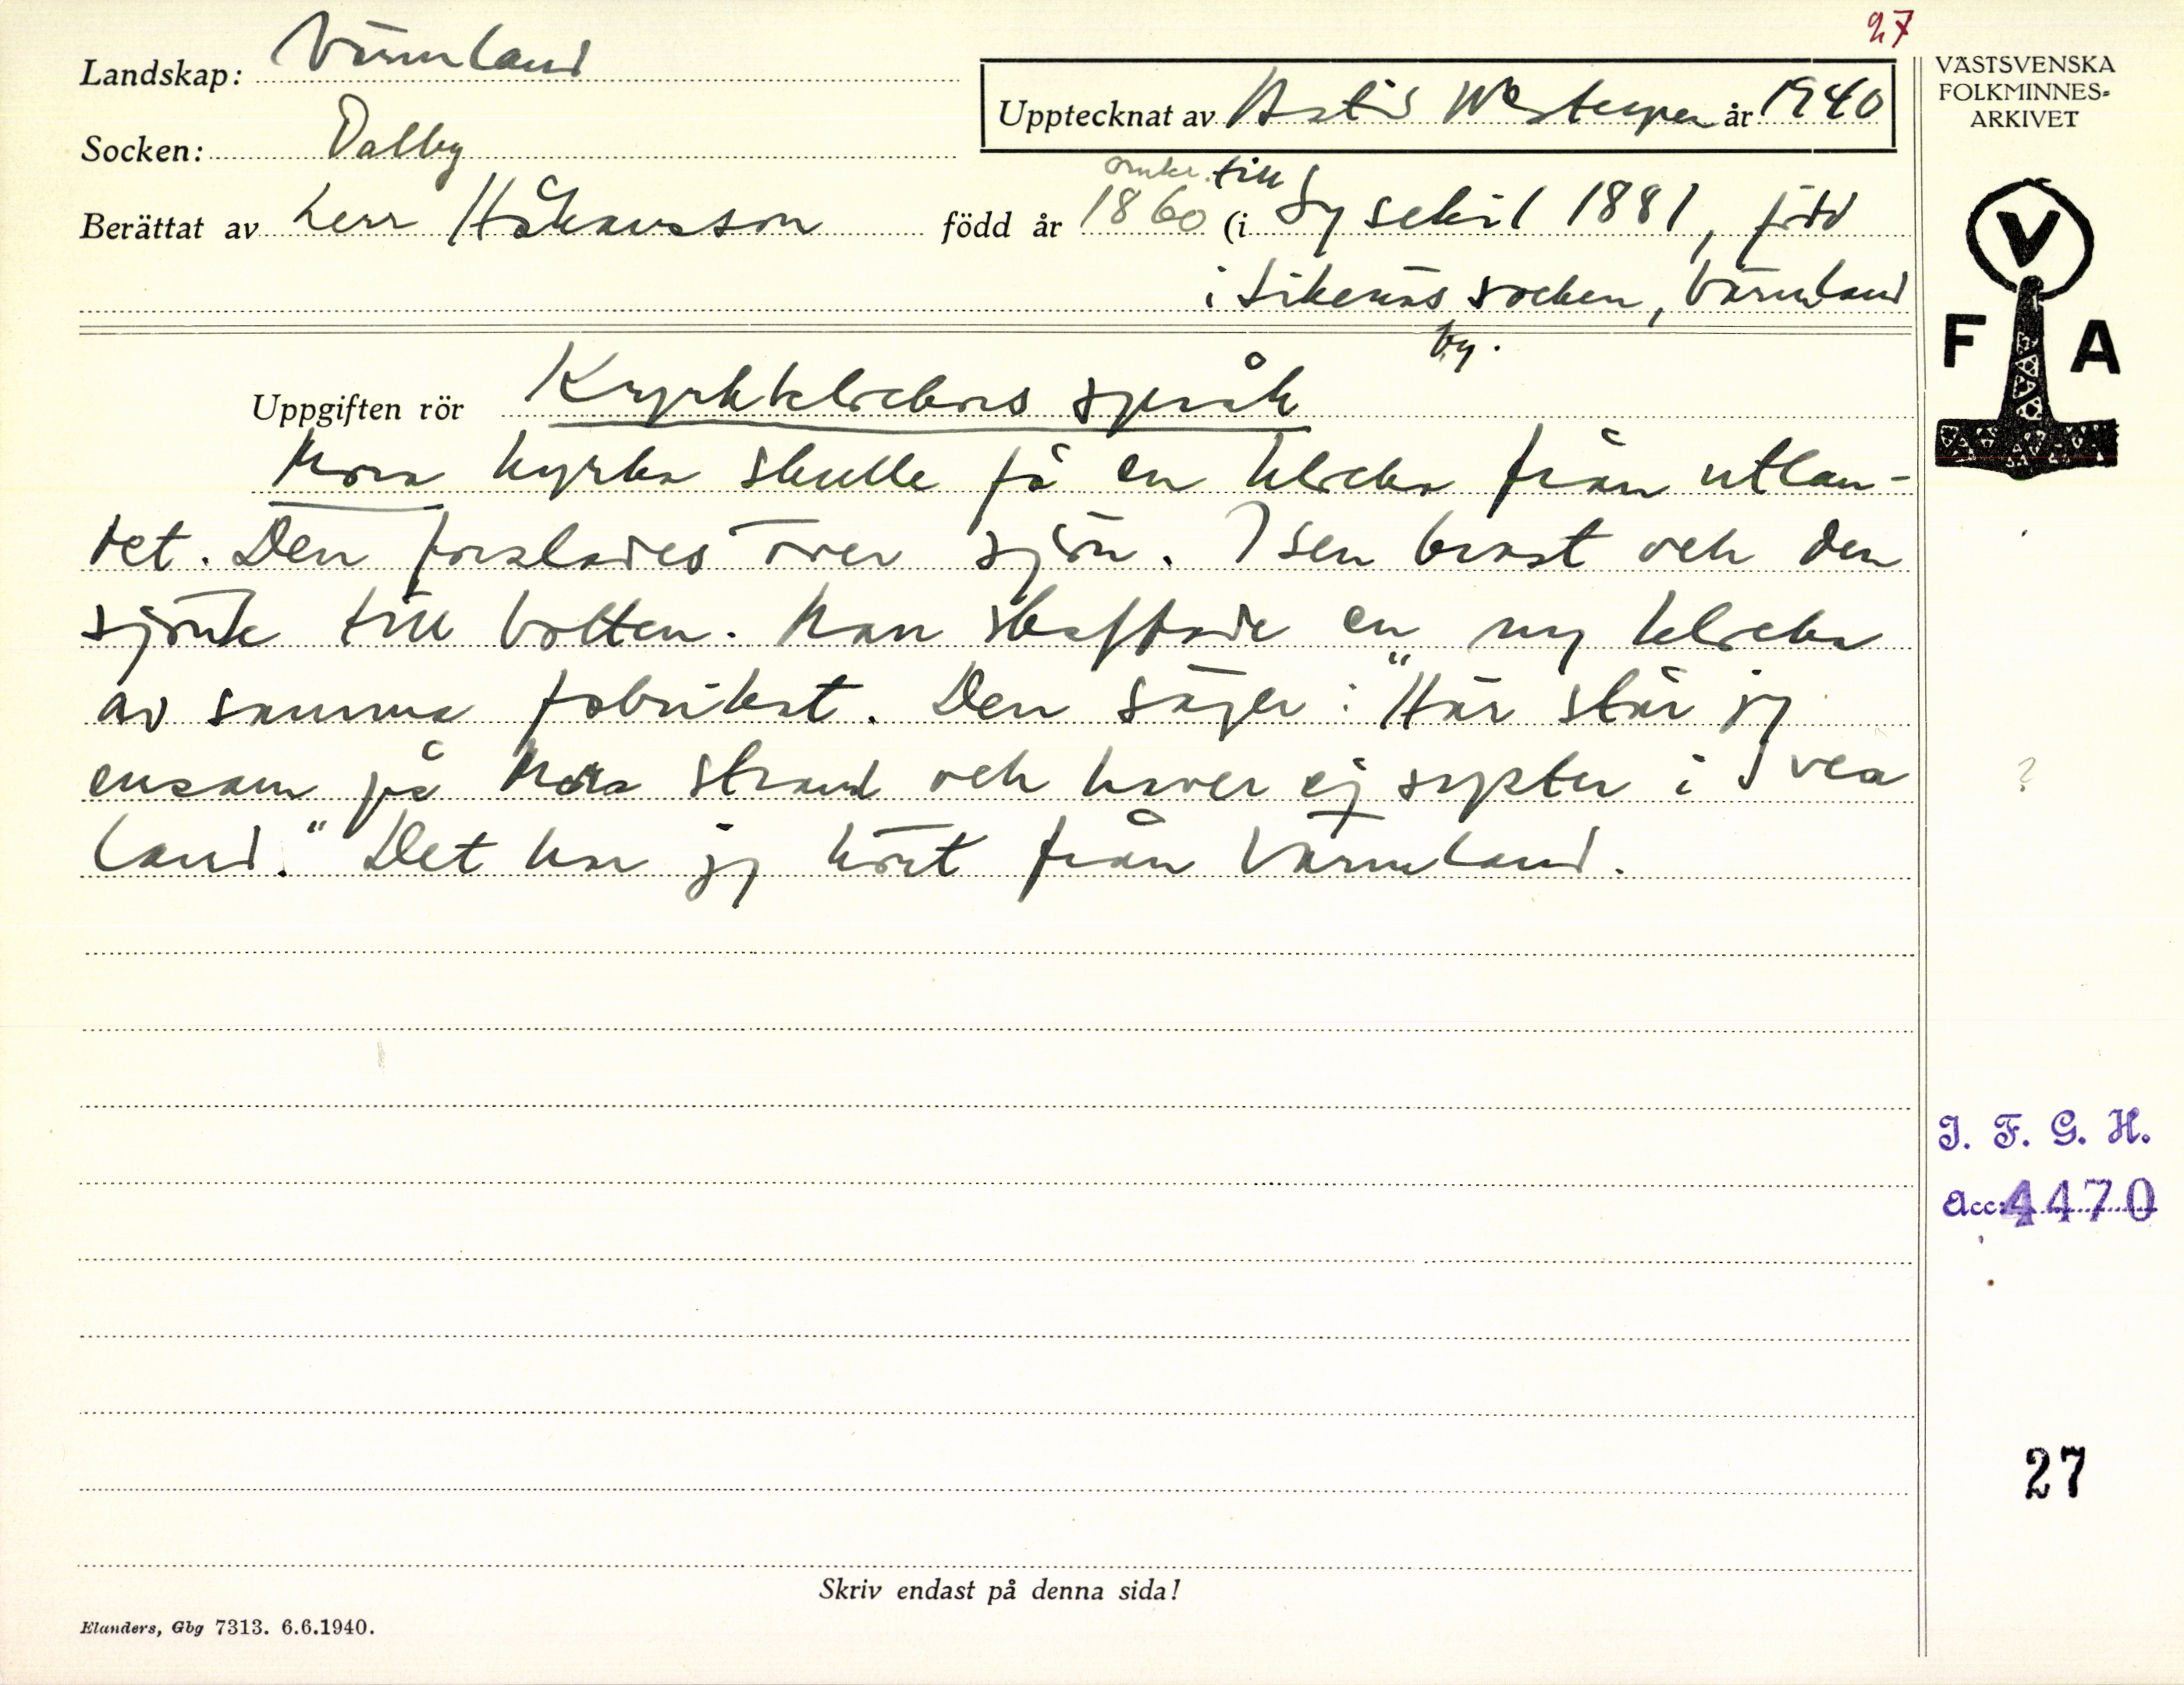 27
Landskap: Värmland
VÄSTSVENSKA
FOLKMINNES-
ARKIVET
Upptecknat av Astis år 1940
Socken: Dalby
omkr. till
Berättat av herr Håkansson född år 1860 (i Lysekil 1881, född
i Likenäs socken, Värmland
by.
V
F A
Uppgiften rör Kyrkklockors språk
Mora kyrka skulle få en klocka från utlan-
det. Den forslades över sjön. Isen brast och den
sjönk till botten. Man skaffade en ny klocka
av samma fabrikat. Den säger: "Här står jg
ensam på Mora strand och haver ej syster i Svea
?
land." Det har jg hört från Värmland.
I. F. G. H.
Acc: 4470
27
Skriv endast på denna sida!
Elanders, Gbg 7313. 6.6.1940.